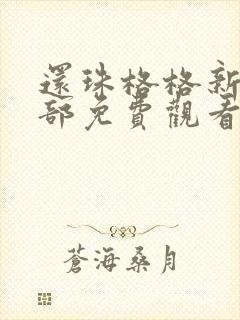 還珠格格新
部免費觀看
蒼海桑月